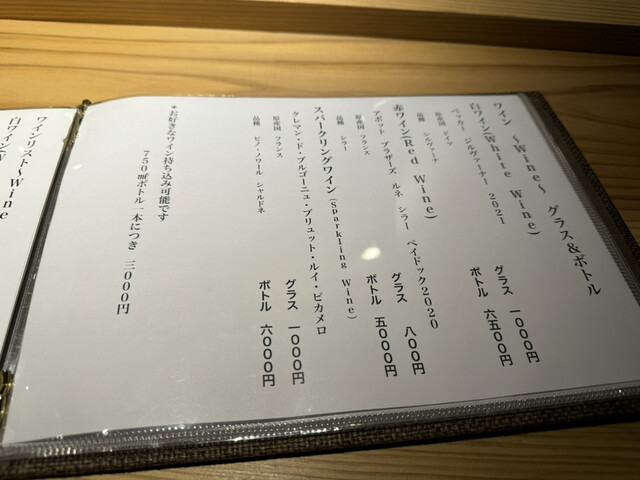 ワイン ～Wine～ グラス&ボトル
白ワイン(White Wine)
ベッカー ジルヴァーナー 2021
グラス 一000円
ボトル 六五00円
原産国 ドイツ
品種 シルヴァーナ
赤ワイン(Red Wine)
アボット ブラザーズ ルネ シラー ペイドック2020
グラス 八00円
ボトル 五000円
原産国 フランス
品種 シラー
スパークリングワイン(Sparkling Wine)
クレマン・ド・ブルゴーニュ・ブリュット・ルイ・ピカメロ
グラス 一000円
ボトル 六000円
原産国 フランス
品種 ピノ・ノワール シャルドネ
*お好きなワイン持ち込み可能です
750㎖ボトル一本につき 三000円
ワインリスト～Wine
白ワイン(W